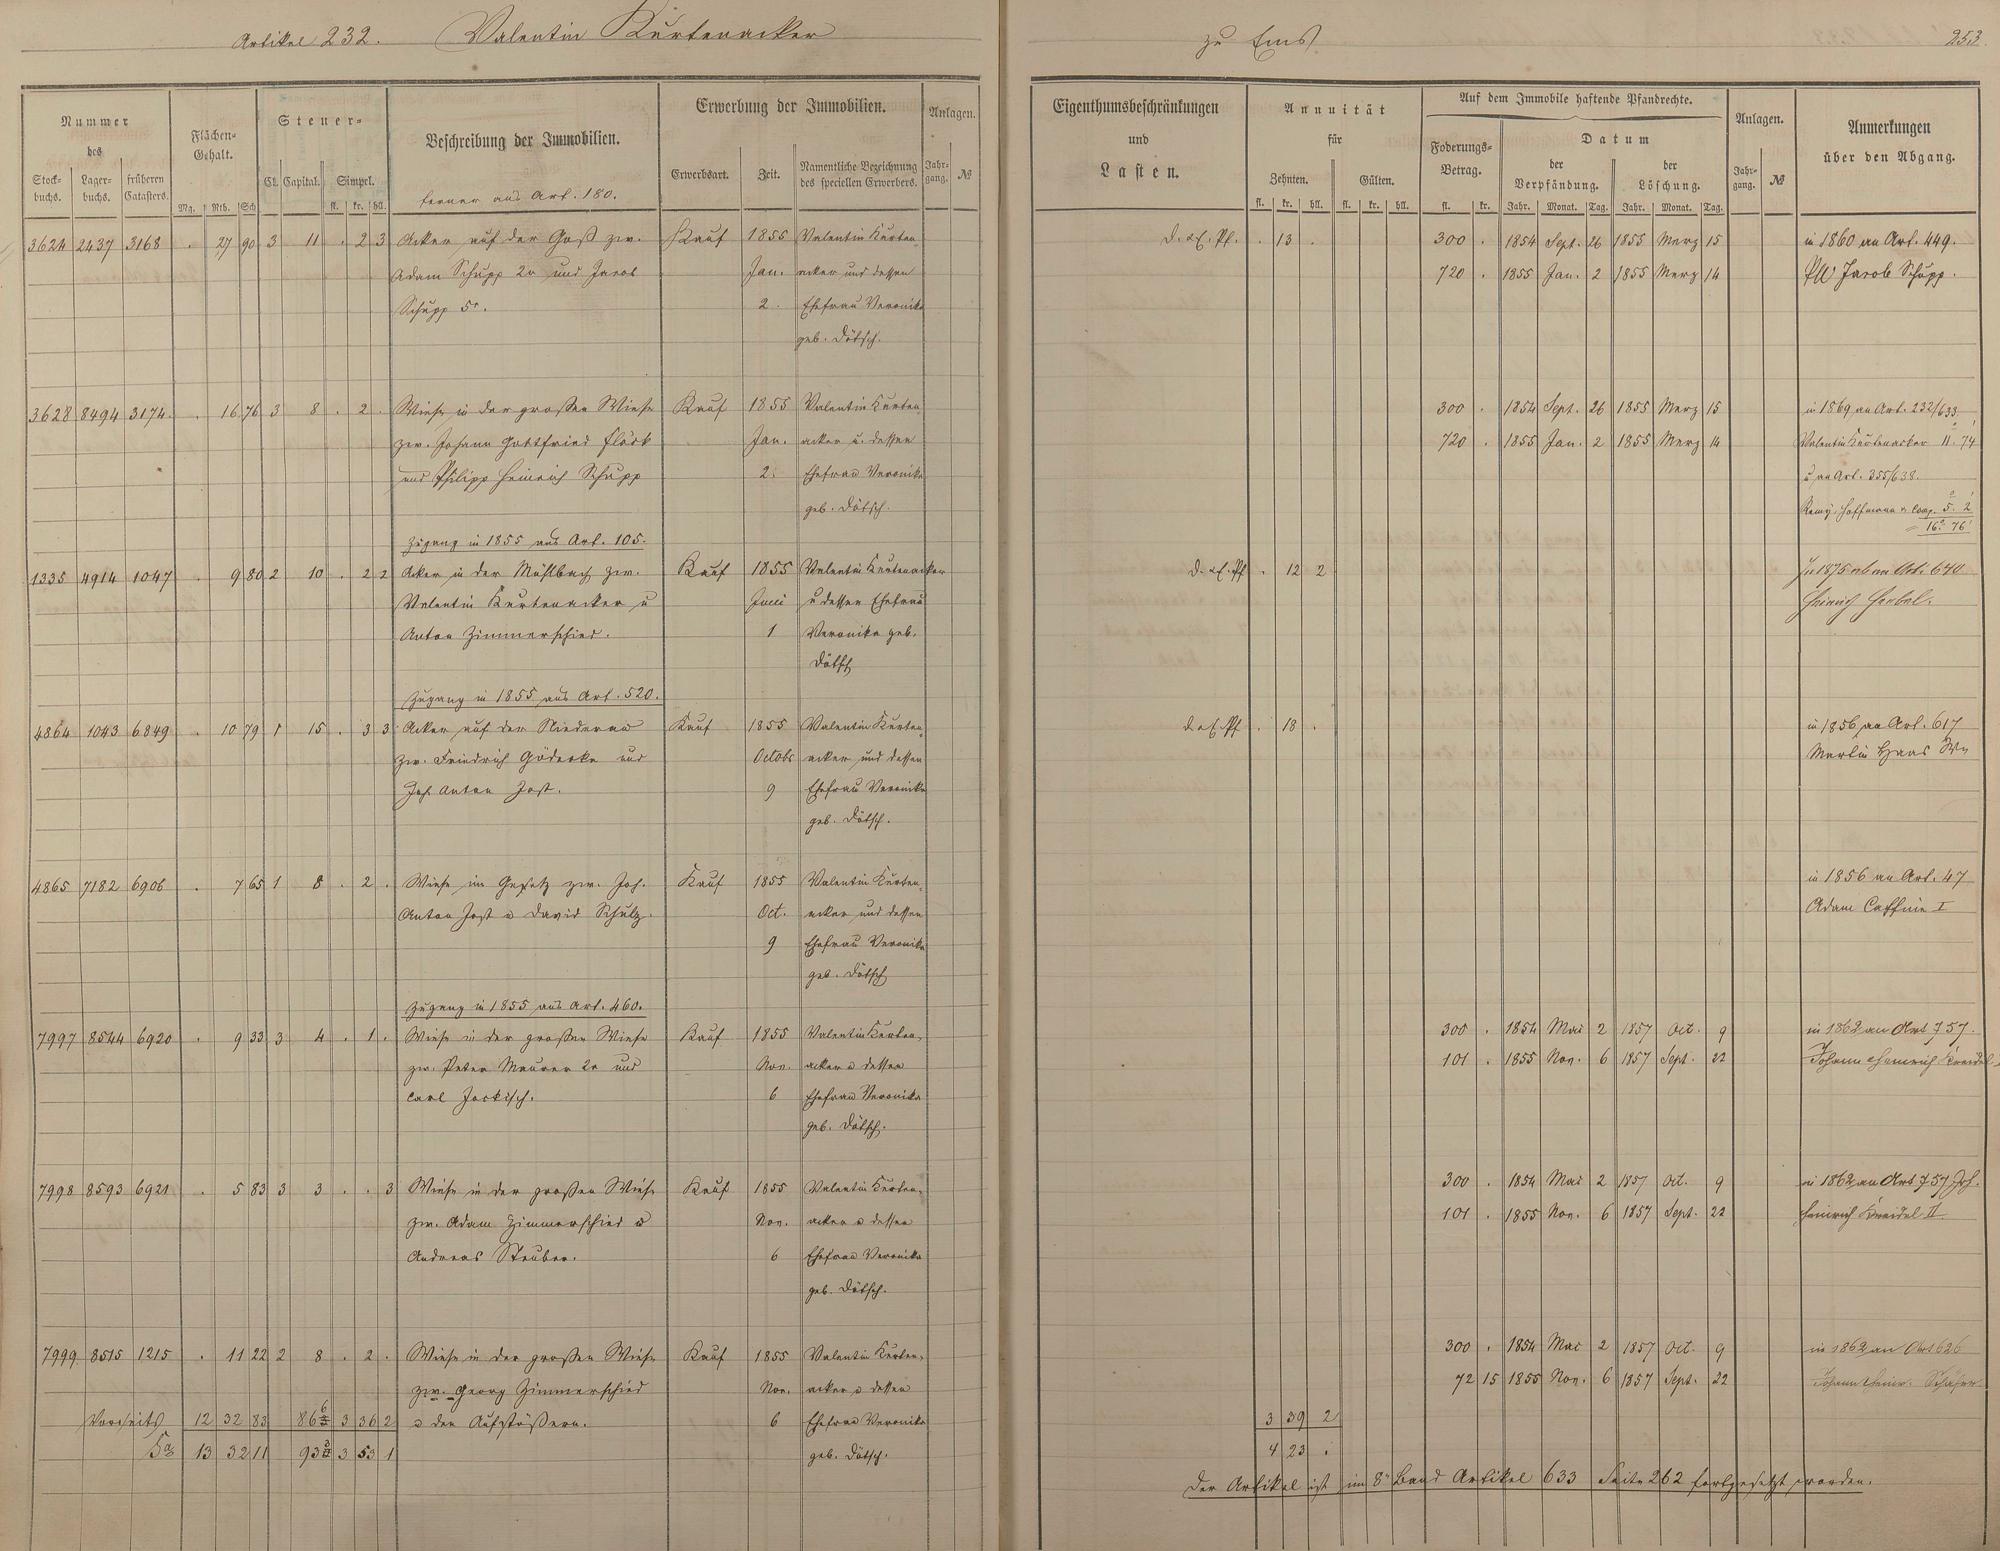 Artikel 232. Valentin Kurtenacker
zu Ems
253.
Nummer des
Stock-buchs. Lager-buchs. früheren Catasters.
Flächen-Gehalt.
Mg. Rth. Sch
Steuer-
Cl. Capital. Simpel.
fl. kr. hll.
Beschreibung der Immobilien.
ferner aus Art. 180.
Erwerbung der Immobilien.
Erwerbsart. Zeit. Namentliche Bezeichnung des speciellen Erwerbers.
Anlagen.
Jahr-gang. №
Eigenthumsbeschränkungen
und
Lasten.
Annuität
für
Zehnten. Gülten.
fl. kr. hll. fl. kr. hll.
Auf dem Immobile haftende Pfandrechte.
Foderungs-Betrag.
fl. kr.
Datum
der Verpfändung. der Löschung.
Jahr. Monat. Tag. Jahr. Monat. Tag.
Anlagen.
Jahr-gang. №
Anmerkungen
über den Abgang.
3624 2437 3168 . 27 90 3 11 . 2 3 Acker auf der Gass zw. Kauf 1855 Valentin Kurten- . 13 . 300 . 1854 Sept. 26 1855 Merz 15 in 1860 an Art. 449.
Adam Schupp 2r und Jacob Jan. acker und dessen 720 . 1855 Jan. 2 1855 Merz 14 Jacob Schupp.
Schupp 5r. 2. Ehefrau Veronika
geb. Dötsch.
3628 8494 3174. . 16 76 3 8 . 2 . Wiese in der großen Wiese Kauf 1855 Valentin Kurten- 300 . 1854 Sept. 26 1855 Merz 15 in 1869 an Art. 232/633
zw. Johann Gottfried Flöck Jan. acker u. dessen 720 . 1855 Jan. 2 1855 Merz 14 Valentin Kurtenacker 11. 74
und Philipp Heinrich Schupp 2. Ehefrau Veronika u an Art. 355/638.
geb. Dötsch. Remy, Hoffmann & Comp. 5. 2
16. 76
Zugang in 1855 aus Art. 105.
1335 4914 1047 . 9 80 2 10 . 2 2 Acker in der Mühlbach zw. Kauf 1855 Valentin Kurtenacker . 12 2 In 1875 ab an Art. 640
Valentin Kurtenacker u Juni u dessen Ehefrau Heinrich
Anton Zimmerschied. 1 Veronika geb.
Dötsch
Zugang in 1855 aus Art. 520.
4864 1043 6849 . 10 79 1 15 . 3 3 Acker auf der Niederau Kauf 1855 Valentin Kurten- . 18 . in 1856 an Art. 617
zw. Friedrich Gödecke und Octobr acker und dessen Martin Haas
Joh. Anton Jost. 9 Ehefrau Veronika
geb. Dötsch.
4865 7182 6906 . 7 65 1 8 . 2 . Wiese im Gesetz zw. Joh. Kauf 1855 Valentin Kurten- in 1856 an Art. 47
Anton Jost u David Schulz. Oct. acker und dessen Adam I
9 Ehefrau Veronika
geb. Dötsch
Zugang in 1855 aus Art. 460.
7997 8544 6920 . 9 33 3 4 . 1 . Wiese in der großen Wiese Kauf 1855 Valentin Kurten- 300 . 1854 Mai 2 1857 Oct. 9 in 1862 an Art 757.
zw. Peter Maurer 2r und Nov. acker u dessen 101 . 1855 Nov. 6 1857 Sept. 22 Johann Heinrich Kreidel
Carl Jockisch. 6 Ehefrau Veronika
geb. Dötsch.
7998 8593 6921 . 5 83 3 3 . . 3 Wiese in der großen Wiese Kauf 1855 Valentin Kurten- 300 . 1854 Mai 2 1857 Oct. 9 in 1862 an Art 757 Joh.
zw. Adam Zimmerschied u Nov. acker u dessen 101 . 1855 Nov. 6 1857 Sept. 22 Heinrich Kreidel II
Andreas Steuber. 6 Ehefrau Veronika
geb. Dötsch.
7999 8515 1215 . 11 22 2 8 . 2 . Wiese in der großen Wiese Kauf 1855 Valentin Kurten- 300 . 1854 Mai 2 1857 Oct. 9 in 1862 an Art 626
zw. Georg Zimmerschied Nov. acker u dessen 72 15 1855 Nov. 6 1857 Sept. 22 Johann
Vorseits 12 32 83 3 36 2 u den Aufstößern. 6 Ehefrau Veronika 3 39 2
Sa 13 32 11 3 53 1 geb. Dötsch. 4 23 .
Der Artikel ist im 8n Band Artikel 633 Seite 262 fortgesetzt worden.